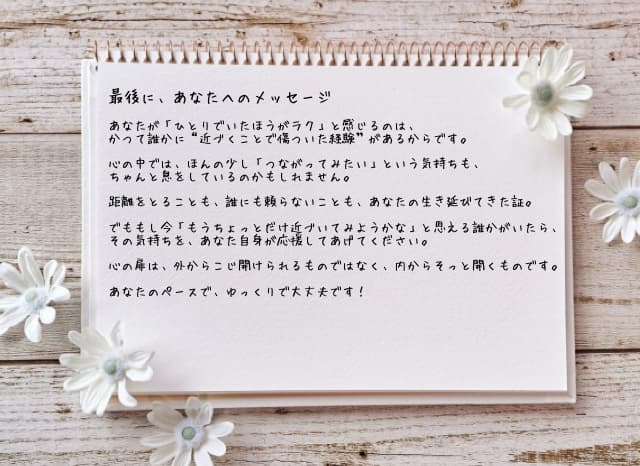 最後に、あなたへのメッセージ
あなたが「ひとりでいたほうがラク」と感じるのは、
かつて誰かに“近づくことで傷ついた経験”があるからです。
心の中では、ほんの少し「つながってみたい」という気持ちも、
ちゃんと息をしているのかもしれません。
距離をとることも、誰にも頼らないことも、あなたの生き延びてきた証。
でももし今「もうちょっとだけ近づいてみようかな」と思える誰かがいたら、
その気持ちを、あなた自身が応援してあげてください。
心の扉は、外からこじ開けられるものではなく、内からそっと開くものです。
あなたのペースで、ゆっくりで大丈夫です！